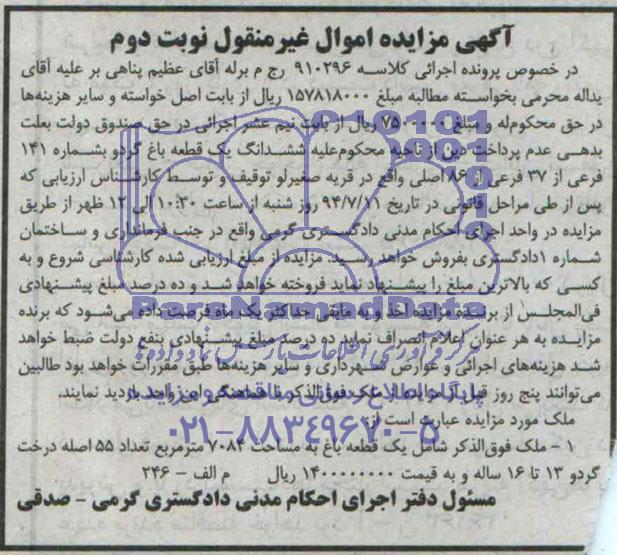 آگهی مزایده اموال غیرمنقول نوبت دوم
در خصوص پرونده اجرائی کلاسه ۹۱۰۲۹۶ رج م برله آقای عظیم پناهی بر علیه آقای
یداله محرمی بخواسته مطالبه مبلغ ۱۵۷۸۱۸۰۰۰ ریال از بابت اصل خواسته و سایر هزینه‌ها
در حق محکوم‌له و مبلغ ریال از بابت نیم عشر اجرائی در حق صندوق دولت بعلت
بدهی عدم پرداخت دین از ناحیه محکوم‌علیه ششدانگ یک قطعه باغ گردو بشماره ۱۴۱
فرعی از ۳۷ فرعی از ۸۶ اصلی واقع در قریه صغیرلو توقیف و توسط کارشناس ارزیابی که
پس از طی مراحل قانونی در تاریخ ۹۴/۷/۱۱ روز شنبه از ساعت ۱۰:۳۰ الی ۱۲ ظهر از طریق
مزایده در واحد اجرای احکام مدنی دادگستری گرمی واقع در جنب فرمانداری و ساختمان
شماره ۱دادگستری بفروش خواهد رسید. مزایده از مبلغ ارزیابی شده کارشناسی شروع و به
کسی که بالاترین مبلغ را پیشنهاد نماید فروخته خواهد شد و ده درصد مبلغ پیشنهادی
فی‌المجلس از برنده مزایده اخذ و به مابقی حداکثر یک ماه فرصت داده می‌شود که برنده
مزایده به هر عنوان اعلام انصراف نماید ده درصد مبلغ پیشنهادی بنفع دولت ضبط خواهد
شد هزینه‌های اجرائی و عوارض شهرداری و سایر هزینه‌ها طبق مقررات خواهد بود طالبین
می‌توانند پنج روز قبل از مزایده از ملک فوق‌الذکر با هماهنگی این واحد بازدید نمایند.
ملک مورد مزایده عبارت است از:
۱ - ملک فوق‌الذکر شامل یک قطعه باغ به مساحت ۷۰۸۳ مترمربع تعداد ۵۵ اصله درخت
گردو ۱۳ تا ۱۶ ساله و به قیمت ۱۴۰۰۰۰۰۰۰۰ ریال م الف - ۲۳۶
مسئول دفتر اجرای احکام مدنی دادگستری گرمی - صدقی
ParsNamadData
مرکز فرآوری اطلاعات پارس نماد داده‌ها
پایگاه اطلاع رسانی مناقصه و مزایده
۰۲۱-۸۸۳۴۹۶۷۰-۵